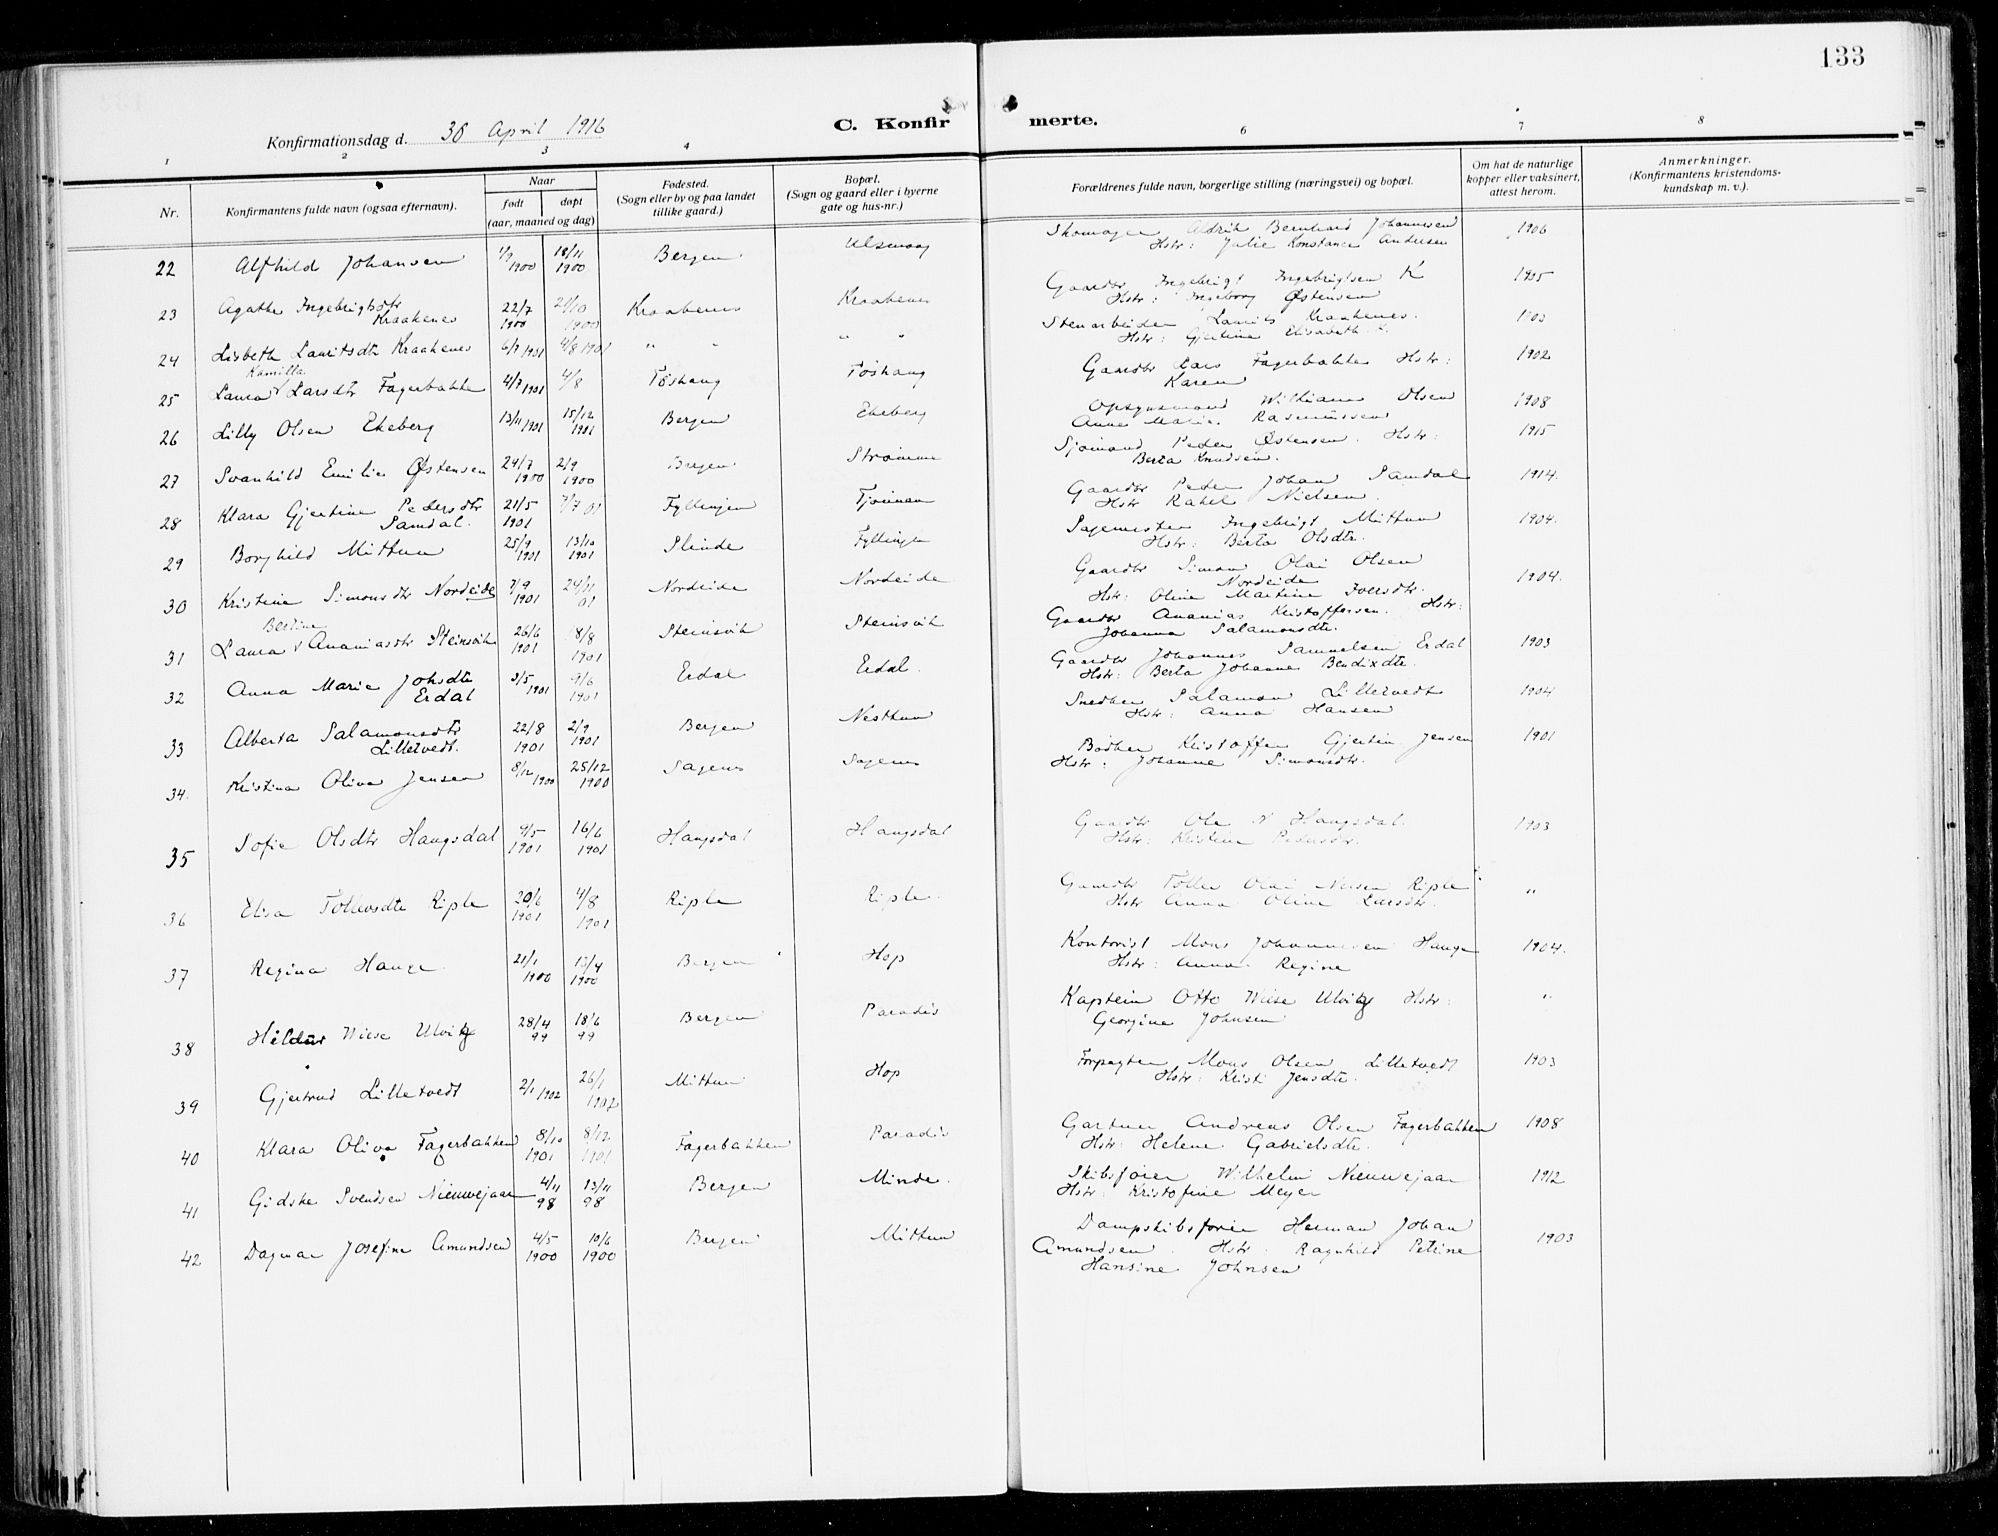 133
Konfirmationsdag d. 30 April 1916
C. Konfirmerte.
1 2 3 4 6 7 8
Nr. | Konfirmantens fulde navn (ogsaa efternavn). | Naar født døpt (aar, maaned og dag) | Fødested. (Sogn eller by og paa landet tillike gaard.) | Bopæl. (Sogn og gaard eller i byerne gate og hus-nr.) | Forældrenes fulde navn, borgerlige stilling (næringsvei) og bopæl. | Om hat de naturlige kopper eller vaksinert, attest herom. | Anmerkninger. (Konfirmantens kristendoms-kundskap m. v.).
22 Alfhild Johansen 1/9 1900 18/11 1900 Bergen Ulsmaag Skomager Aldrik Bernhard Johannesen Hstr: Julie Konstance Andersen 1906
23 Agathe Ingebrigtsdtr Kraakenes 22/7 1900 21/10 1900 Kraakenes Kraakenes Gaardbr Ingebrigt Ingebrigtsen K Hstr: Ingeborg Østensen 1905
24 Lisbeth Lauritsdtr Kraakenes 6/7 1901 4/8 1901 " " " " Stenarbeider Laurits Kraakenes. Hstr: Gjertine Elisabeth K. 1903
25 Laura Kamilla Larsdtr Fagerbakke 4/7 1901 4/8 Tøshaug Tøshaug Gaardbr Lars Fagerbakke Hstr: Karen 1902
26 Lilly Olsen Ekeberg 13/11 1901 15/12 1901 Bergen Ekeberg Opsynsmand William Olsen Anne Marie Rasmussen 1908
27 Svanhild Emilie Østensen 24/7 1900 2/9 1900 Bergen Strømme Sjømand Peder Østensen. Hstr: Berta Knudsen. 1915
28 Klara Gjertine Pedersdtr Samdal. 21/5 1901 7/7 01 Fyllingen Tjørnan Gaardbr Peder Johan Samdal Hstr Rakel Nielsen. 1914.
29 Borghild Mittun 25/9 1901 13/10 1901 Slinde Fyllingen Sagmester Ingebrigt Mittun Hstr: Berta Olsdtr. 1904.
30 Kristine Simonsdtr Nordeide 7/9 1901 24/11 01 Nordeide Nordeide Gaardbr Simon Olai Olsen Nordeide Hstr: Oline Martine Iversdtr. 1904.
31 Laura Bertine Ananiasdtr Steinsvik 26/6 1901 8/8 1901 Steinsvik Steinsvik Gaardbr Ananias Kristoffersen. Hstr: Johanna Salamonsdtr.
32 Anna Marie Johsdtr Erdal 3/5 1901 9/6 1901 Erdal Erdal. Gaardbr Johannes Samuelsen Erdal Hstr: Berta Johanne Bendixdtr. 1903
33 Alberta Salamonsdtr Lilletvedt. 22/8 1901 2/9 1901 Bergen Nesttun Snedker Salamon Lilletvedt Hstr: Anna Hansen 1904
34. Kristina Oliva Jensen 8/12 1900 25/12 1900 Sagenes Sagenes Bødker Kristoffer Gjertin Jensen Hstr: Johanne Simonsdtr. 1901
35 Sofie Olsdtr Haugsdal 9/5 1901 16/6 1901 Haugsdal Haugsdal Gaardbr Ole N Haugsdal. Hstr: Kristine Pedersdtr. 1903
36 Elisa Tollevsdtr Riple 20/6 1901 4/8 1901 Riple Riple. Gaardbr Tollev Olai Riple Hstr Anna Oline Larsdtr. "
37 Regina Hauge. 21/1 1900 15/4 1900 Bergen Hop Kontorist Mons Johannesen Hauge Hstr: Anna Regine 1904.
38 Hildur Wiese Ulvitz 28/4 99 18/6 99 Bergen Paradis Kaptein Otto Wiese Ulvitz Hstr: Georgine Johnsen "
39 Gjertrud Lilletvedt 2/1 1902 26/1 1902 Mittun Hop Forpagter Mons Olsen Lilletvedt Hstr: Kristi Jensdtr. 1903
40 Klara Oliva Fagerbakken 8/10 1901 8/12 1901 Fagerbakken Paradis Gartner Andreas Olsen Fagerbakken Hstr: Helene Gabrielsdtr. 1908
41 Gidske Svendsen Nieuwejaar 4/11 98 13/11 98 Bergen Minde. Skibsfører Wilhelm Nieuwejaar Hstr: Kristofine Meyer 1912
42 Dagmar Josefine Amundsen 4/5 1900 10/6 1900 Bergen Mittun Dampskibsfører Herman Johan Amundsen. Hstr: Ragnhild Petine Hansine Johnsen 1903